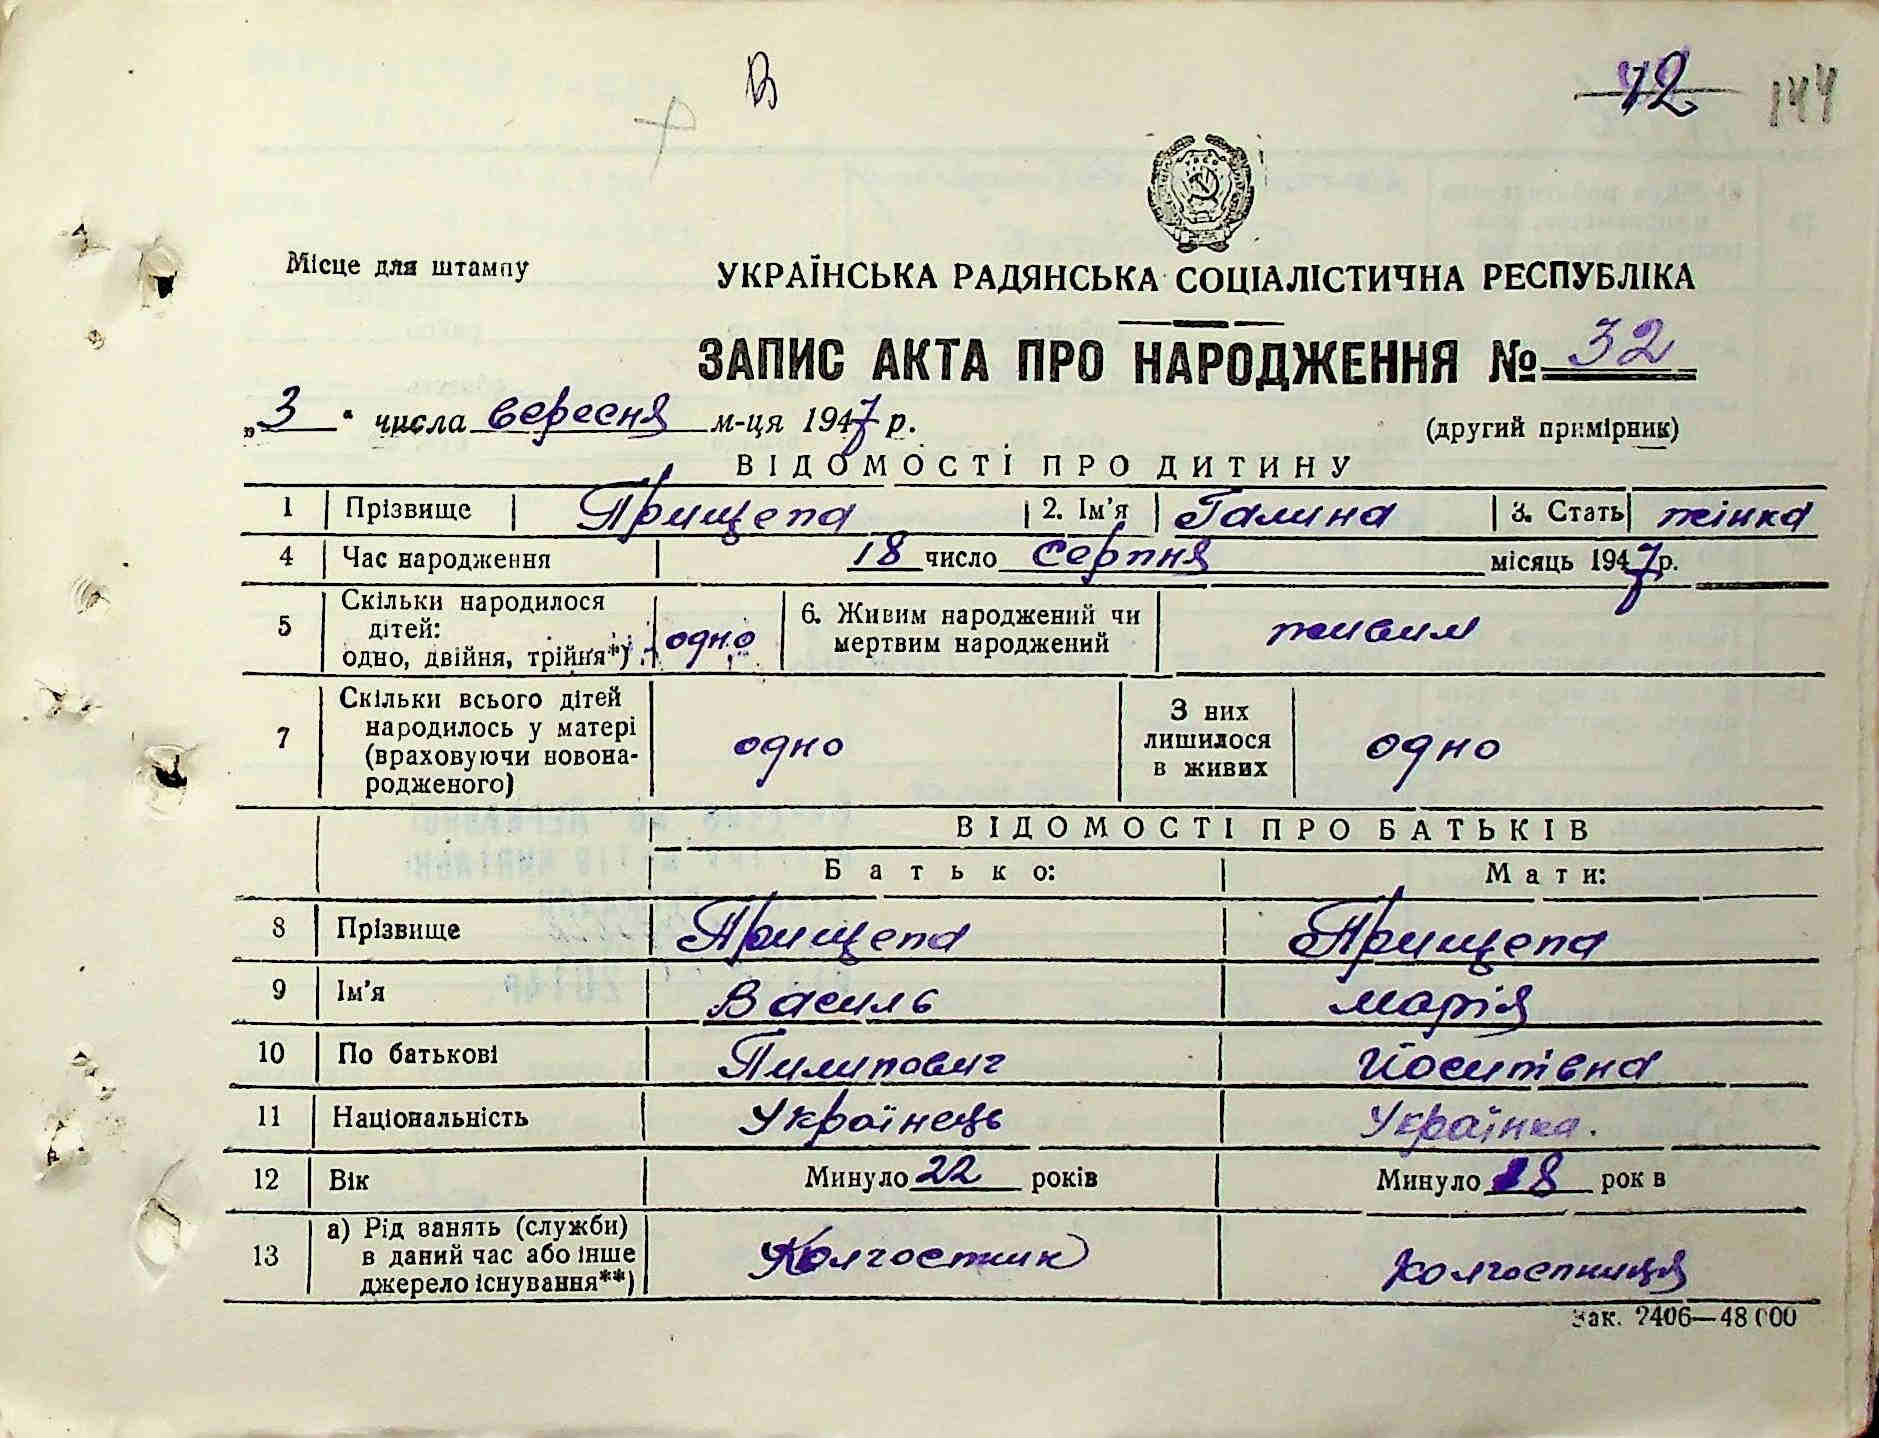 В
12 144
Місце для штампу
УКРАЇНСЬКА РАДЯНСЬКА СОЦІАЛІСТИЧНА РЕСПУБЛІКА
ЗАПИС АКТА ПРО НАРОДЖЕННЯ № 32
„3“ числа вересня м-ця 1947 р.
(другий примірник)
ВІДОМОСТІ ПРО ДИТИНУ
1 Прізвище Прищепа 2. Ім'я Галина 3. Стать жінка
4 Час народження 18 число серпня місяць 1947 р.
5 Скільки народилося дітей: одно, двійня, трійня*) одно 6. Живим народжений чи мертвим народжений живим
7 Скільки всього дітей народилось у матері (враховуючи новонародженого) одно З них лишилося в живих одно
ВІДОМОСТІ ПРО БАТЬКІВ
Батько: Мати:
8 Прізвище Прищепа Прищепа
9 Ім'я Василь Марія
10 По батькові Пилипович Йосипівна
11 Національність Українець Українка.
12 Вік Минуло 22 років Минуло 18 рок в
13 а) Рід занять (служби) в даний час або інше джерело існування**) Колгоспник Колгоспниця
Зак. 2406—48000